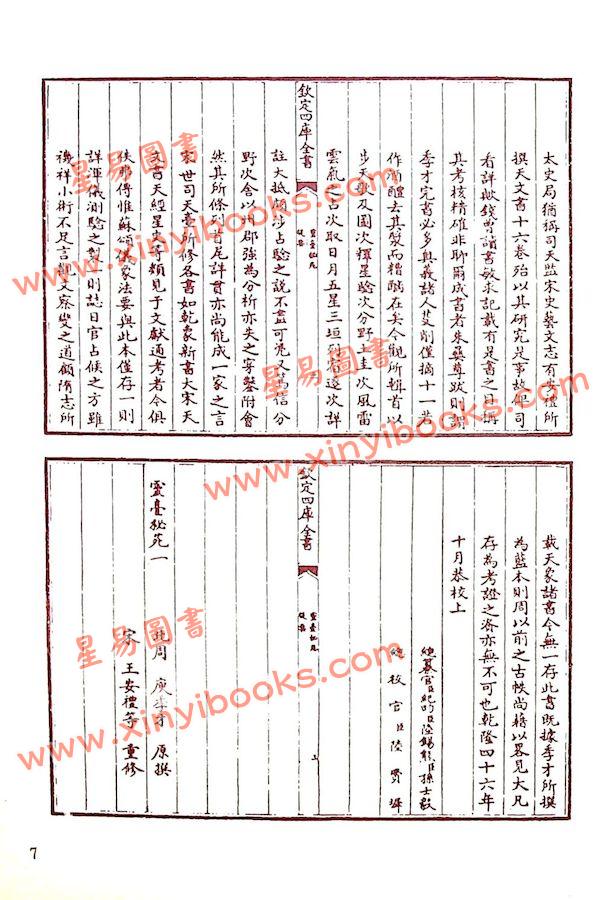 太史局猶稱司天監宋史藝文志有安禮所
撰天文書十六卷殆以其研究是事故俾司
看詳歟錢曾讀書敏求記載有是書之目稱
其考核精確非聊爾成書者朱彝尊跋則謂
季才完書必多奧義諸人芟削僅摘十一若
作酒醴去其漿而糟醨在矣今觀所輯首以
步天歌及圖次釋星驗次分野土圭次風雷
雲氣之占次取日月五星三垣列宿逐次詳
欽定四庫全書
靈臺秘苑
提要
註大抵頗涉占驗之說不盡可凭又篤信分
野次舍以州郡強為分析亦失之穿鑿附會
然其所條列首尾詳貫亦尚能成一家之言
宋世司天臺所修各書如乾象新書大宋天
文書天經星史等類見于文獻通考者今俱
佚傳惟蘇頌儀象法要與此本僅存一則
詳渾儀測驗之製一則誌日官占候之方雖
禨祥小術不足言觀文察變之道顧隋志所
載天象諸書今無一存此書既據季才所撰
為藍本則周以前之古帙尚藉以畧見大凡
存為考證之資亦無不可也乾隆四十六年
十月恭校上
總纂官臣紀昀臣陸錫熊臣孫士毅
總校官臣陸費墀
欽定四庫全書
靈臺秘苑
提要
靈臺秘苑一
北周 庾季才 原撰
宋 王安禮等 重修
7
星易圖書
www.xinyibooks.com
星易圖書
www.xinyibooks.com
星易圖書
www.xinyibooks.com
星易圖書
www.xinyibooks.com